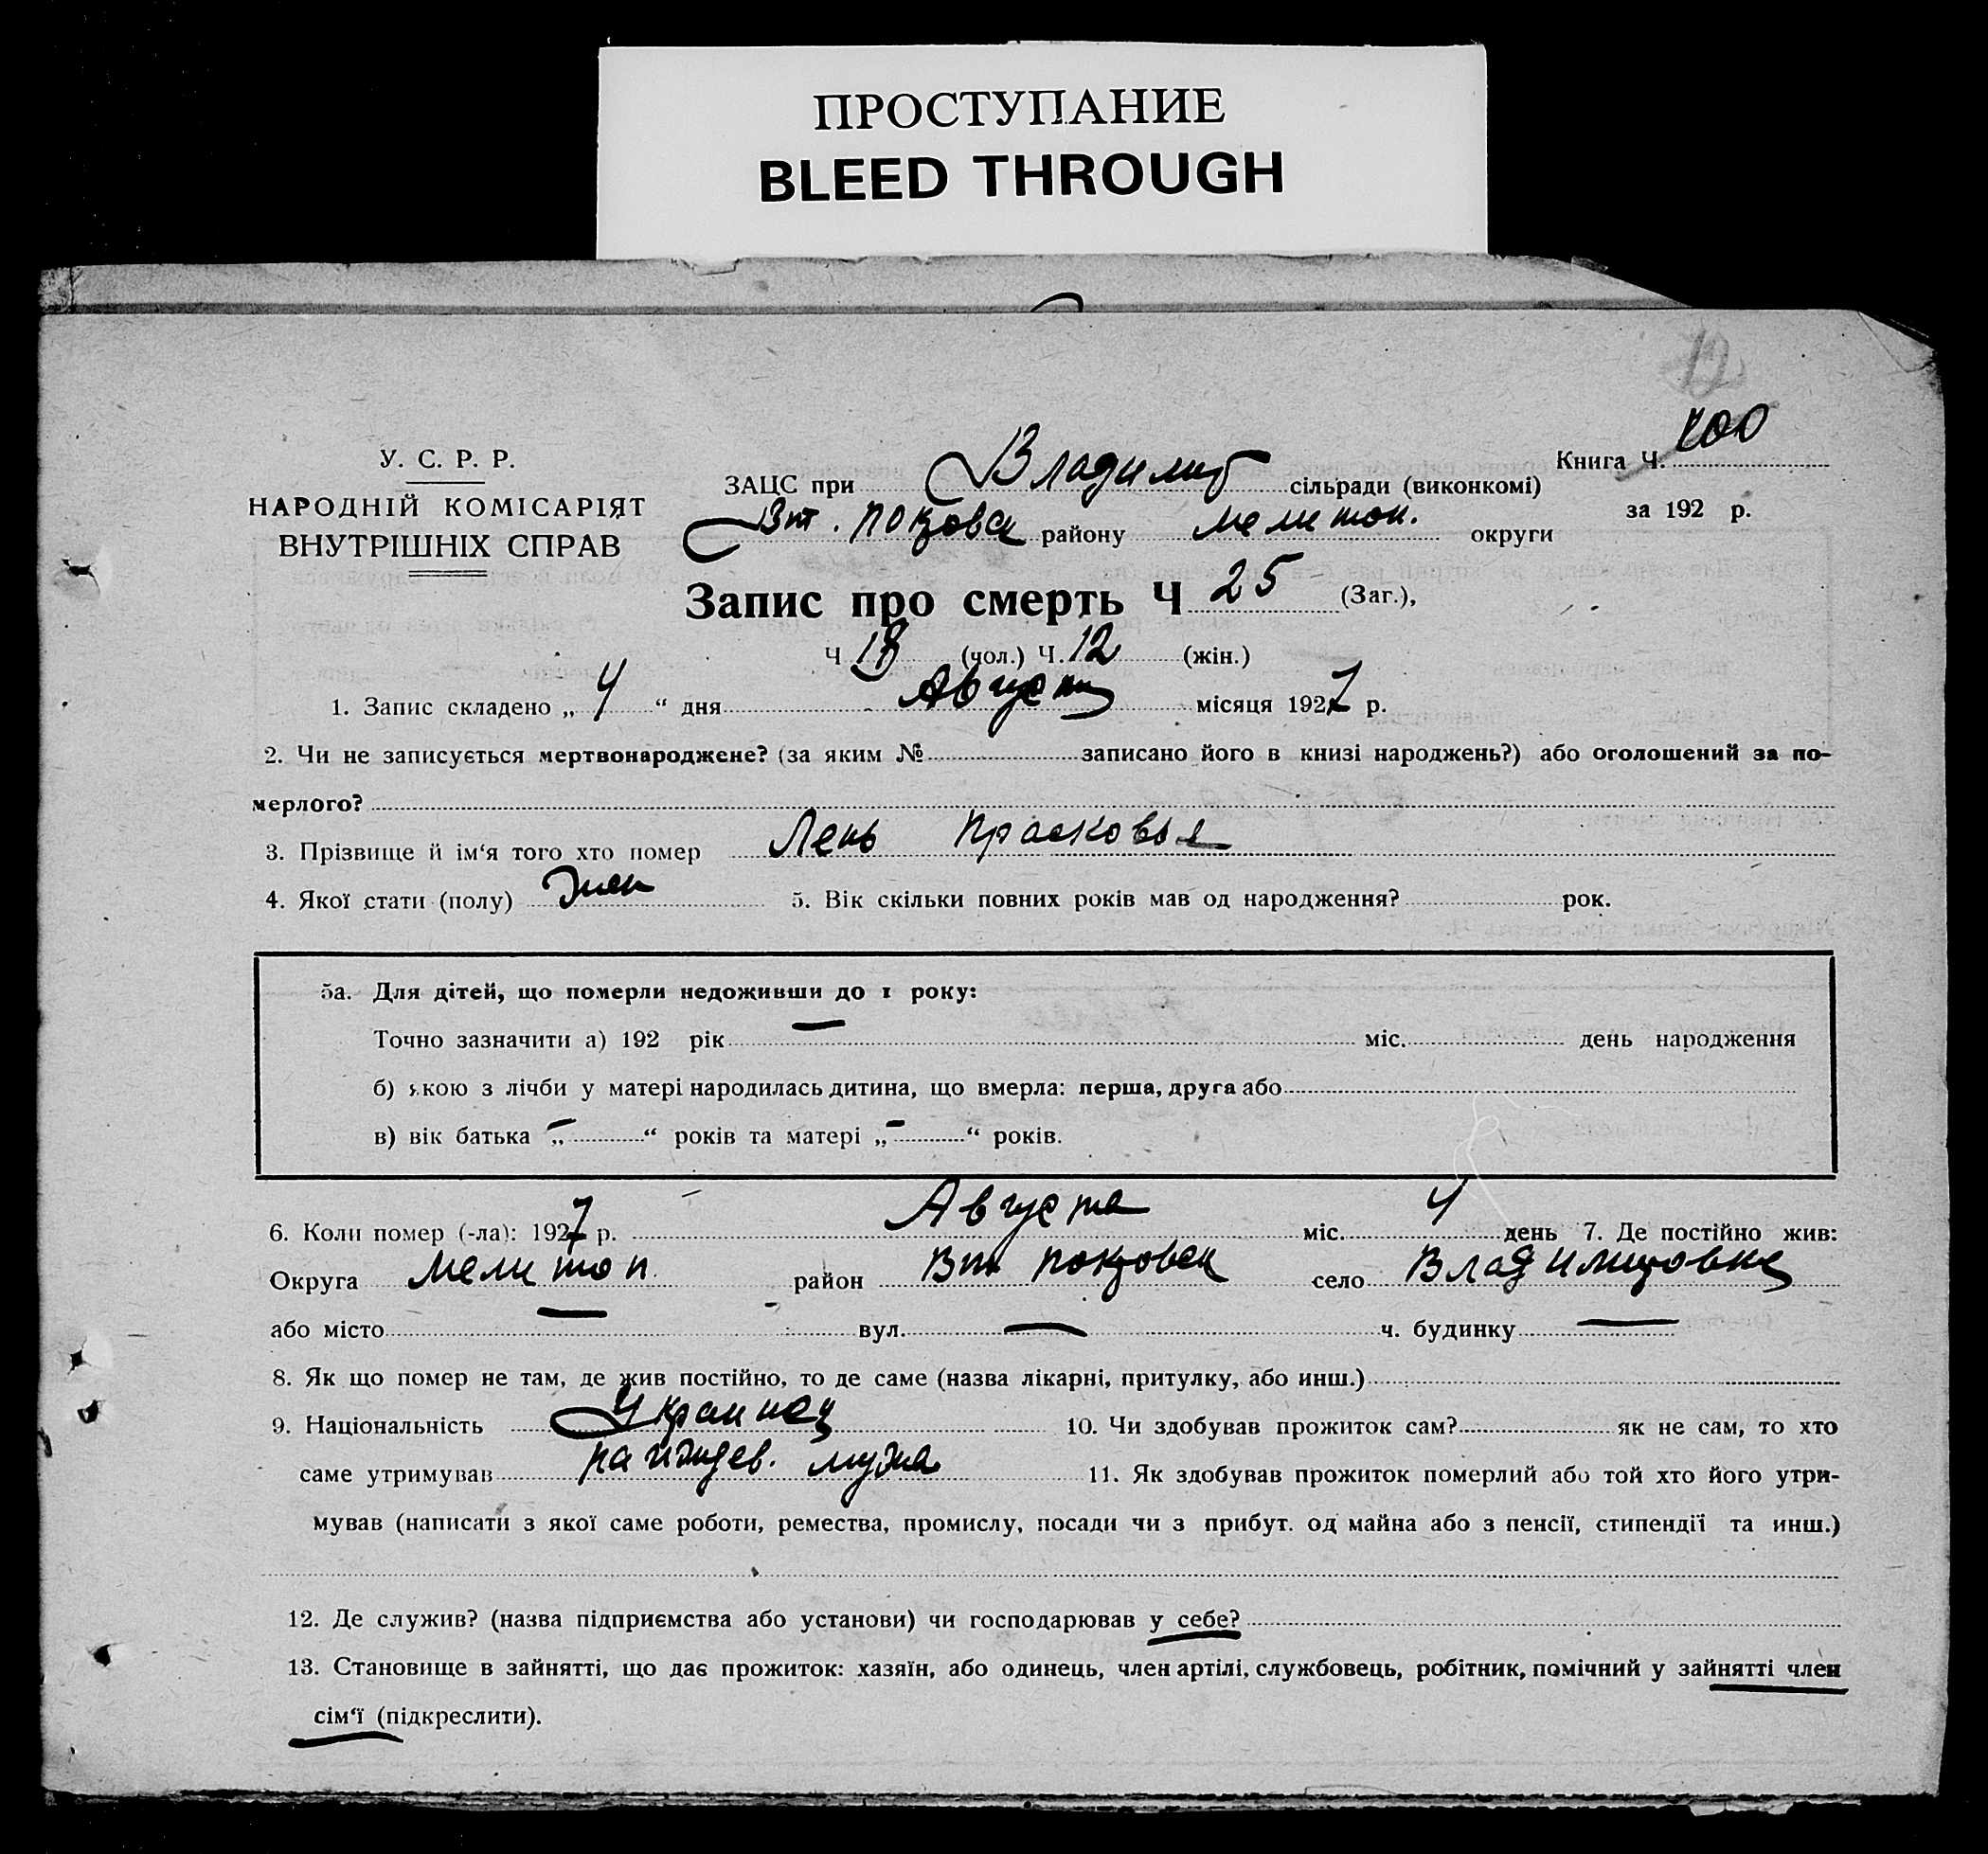 ПРОСТУПАНИЕ
BLEED THROUGH
12
У. С. Р. Р.
НАРОДНІЙ КОМІСАРІЯТ
ВНУТРІШНІХ СПРАВ
Книга Ч. 400
за 192 р.
ЗАЦС при Владимир сільради (виконкомі)
Вт. Покровск району Мелитоп. округи
Запис про смерть Ч 25 (Заг.),
Ч 13 (чол.) Ч. 12 (жін.)
1. Запис складено „ 4 “ дня Августа місяця 1927 р.
2. Чи не записується мертвонароджене? (за яким № записано його в книзі народжень?) або оголошений за по-
мерлого?
3. Прізвище й ім‘я того хто помер Лень Прасковья
4. Якої стати (полу) жен 5. Вік скільки повних років мав од народження? рок.
5а. Для дітей, що померли недоживши до 1 року:
Точно зазначити а) 192 рік — міс. день народження
б) якою з лічби у матері народилась дитина, що вмерла: перша, друга або
в) вік батька „ — “ років та матері „ — “ років.
6. Коли помер (-ла): 1927 р. Августа міс. 4 день 7. Де постійно жив:
Округа Мелитоп. район Вт Покровск село Владимировка
або місто — вул. — ч. будинку —
8. Як що помер не там, де жив постійно, то де саме (назва лікарні, притулку, або инш.)
9. Національність Украинец 10. Чи здобував прожиток сам? як не сам, то хто
саме утримував на иждев. мужа 11. Як здобував прожиток померлий або той хто його утри-
мував (написати з якої саме роботи, ремества, промислу, посади чи з прибут. од майна або з пенсії, стипендії та инш.)
12. Де служив? (назва підприємства або установи) чи господарював у себе?
13. Становище в зайнятті, що дає прожиток: хазяїн, або одинець, член артілі, службовець, робітник, помічний у зайнятті член
сім‘ї (підкреслити).